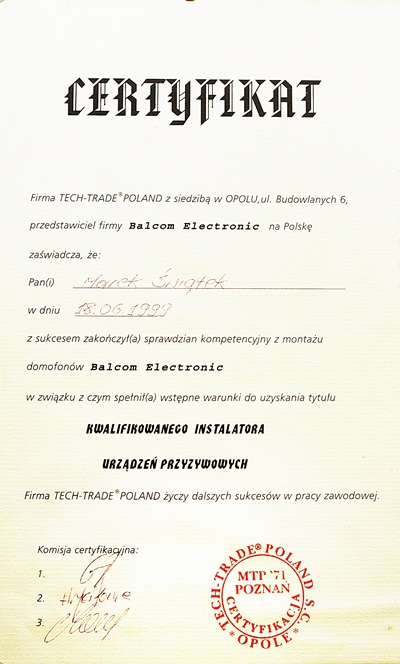 CERTYFIKAT
Firma TECH-TRADE®POLAND z siedzibą w OPOLU,ul. Budowlanych 6,
przedstawiciel firmy Balcom Electronic na Polskę
zaświadcza, że:
Pan(i) Marek Świątek
w dniu 18.06.1999
z sukcesem zakończył(a) sprawdzian kompetencyjny z montażu
domofonów Balcom Electronic
w związku z czym spełnił(a) wstępne warunki do uzyskania tytułu
KWALIFIKOWANEGO INSTALATORA
URZĄDZEŃ PRZYZYWOWYCH
Firma TECH-TRADE®POLAND życzy dalszych sukcesów w pracy zawodowej.
Komisja certyfikacyjna:
1.
2.
3.
TECH-TRADE® POLAND S.C.
MTP '71
POZNAŃ
CERTYFIKACJA
* OPOLE *